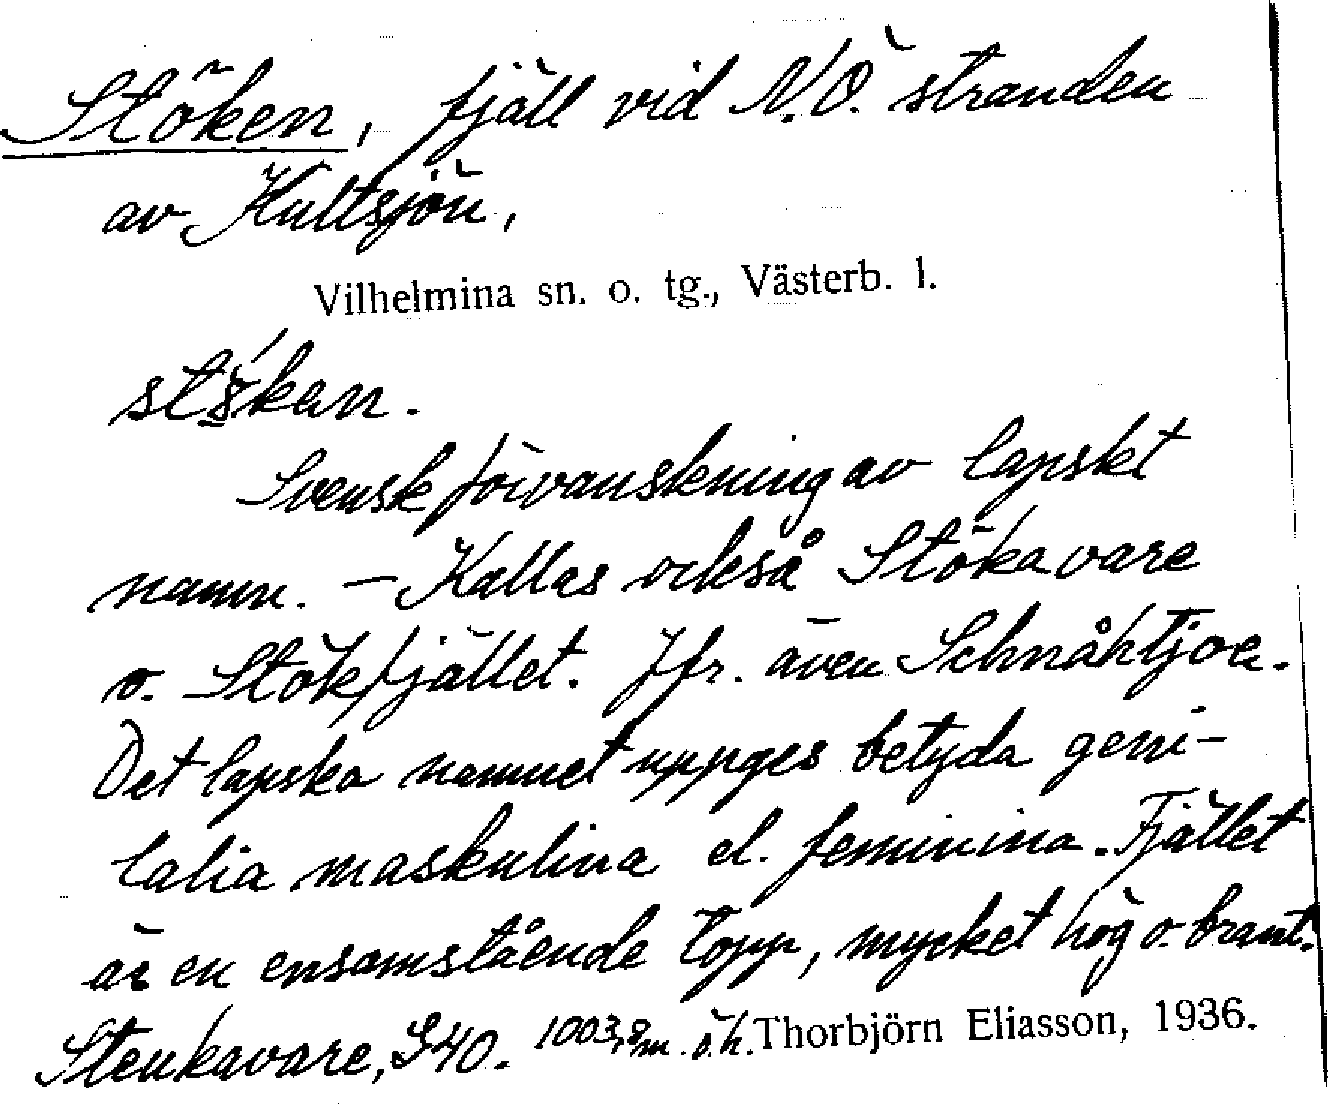 Stöken, fjäll vid N.Ö. stranden
av Kultsjön,
Vilhelmina sn. o. tg., Västerb. l.
Svensk förvanskning av lapskt
namn. — Kallas också Stökavare
o. Stökfjället. Jfr. även
Det lapska namnet uppges betyda geni-
talia maskulina el. feminina. Fjället
är en ensamstående topp, mycket hög o. brant.
Steukavare, S40. 1003,8 m. ö.h. Thorbjörn Eliasson, 1936.